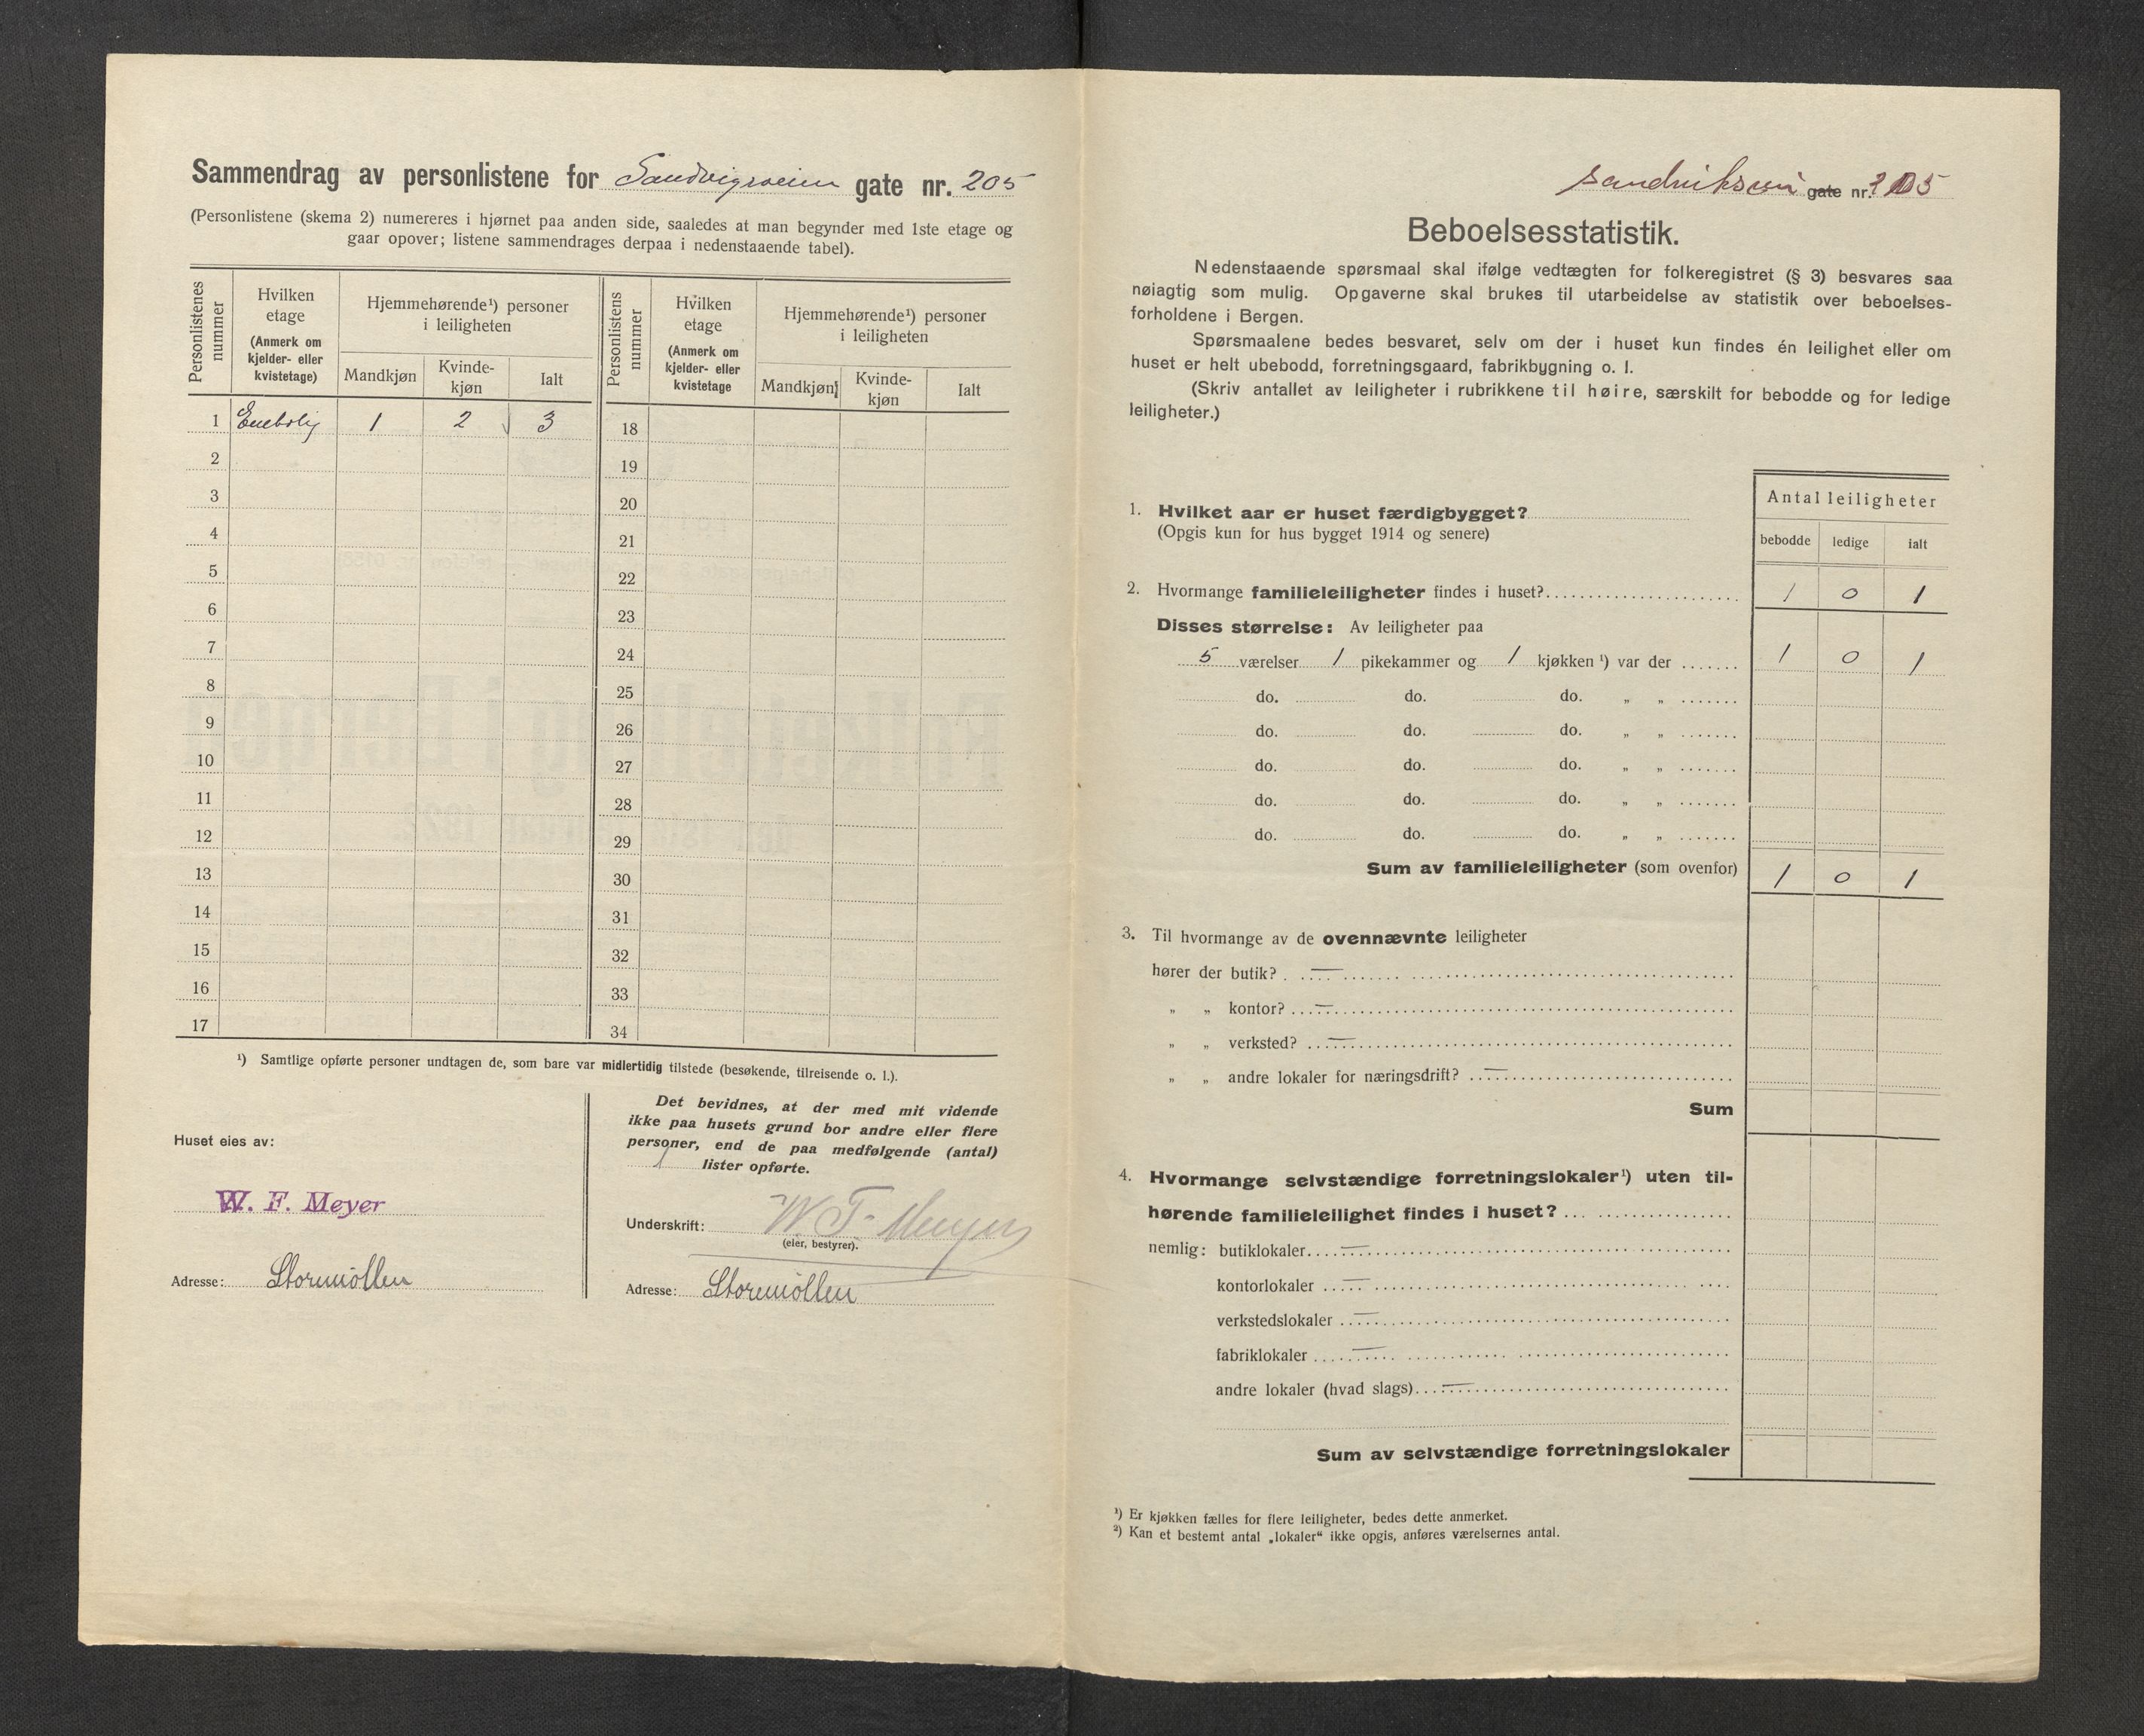 Sammendrag av personlistene for Sandvigsveien gate nr. 205
(Personlistene (skema 2) numereres i hjørnet paa anden side, saaledes at man begynder med 1ste etage og
gaar opover; listene sammendrages derpaa i nedenstaaende tabel).
Personlistenes nummer
Hvilken etage (Anmerk om kjelder- eller kvistetage)
Hjemmehørende¹) personer i leiligheten
Mandkjøn Kvinde-kjøn Ialt
Personlistens nummer
Hvilken etage (Anmerk om kjelder- eller kvistetage
Hjemmehørende¹) personer i leiligheten
Mandkjøn Kvinde-kjøn Ialt
1 Enebolig 1 2 3 18
2 19
3 20
4 21
5 22
6 23
7 24
8 25
9 26
10 27
11 28
12 29
13 30
14 31
15 32
16 33
17 34
¹) Samtlige opførte personer undtagen de, som bare var midlertidig tilstede (besøkende, tilreisende o. l.).
Huset eies av:
W. F. Meyer
Adresse: Storemöllen
Det bevidnes, at der med mit vidende
ikke paa husets grund bor andre eller flere
personer, end de paa medfølgende (antal)
1 lister opførte.
Underskrift: W. F. Meyer
(eier, bestyrer).
Adresse: Storemöllen
Sandviksvei gate nr. 205
Beboelsesstatistik.
Nedenstaaende spørsmaal skal ifølge vedtægten for folkeregistret (§ 3) besvares saa
nøiagtig som mulig. Opgaverne skal brukes til utarbeidelse av statistik over beboelses-
forholdene i Bergen.
Spørsmaalene bedes besvaret, selv om der i huset kun findes én leilighet eller om
huset er helt ubebodd, forretningsgaard, fabrikbygning o. l.
(Skriv antallet av leiligheter i rubrikkene til høire, særskilt for bebodde og for ledige
leiligheter.)
Antal leiligheter
bebodde ledige ialt
1. Hvilket aar er huset færdigbygget?
(Opgis kun for hus bygget 1914 og senere)
2. Hvormange familieleiligheter findes i huset? 1 0 1
Disses størrelse: Av leiligheter paa
5 værelser 1 pikekammer og 1 kjøkken ¹) var der 1 0 1
do. do. do. „ „
do. do. do. „ „
do. do. do. „ „
do. do. do. „ „
do. do. do. „ „
Sum av familieleiligheter (som ovenfor) 1 0 1
3. Til hvormange av de ovennævnte leiligheter
hører der butik? —
„ „ kontor? —
„ „ verksted? —
„ „ andre lokaler for næringsdrift? —
Sum
4. Hvormange selvstændige forretningslokaler¹) uten til-
hørende familieleilighet findes i huset?
nemlig: butiklokaler —
kontorlokaler —
verkstedslokaler —
fabriklokaler —
andre lokaler (hvad slags) —
Sum av selvstændige forretningslokaler
¹) Er kjøkken fælles for flere leiligheter, bedes dette anmerket.
²) Kan et bestemt antal „lokaler“ ikke opgis, anføres værelsernes antal.